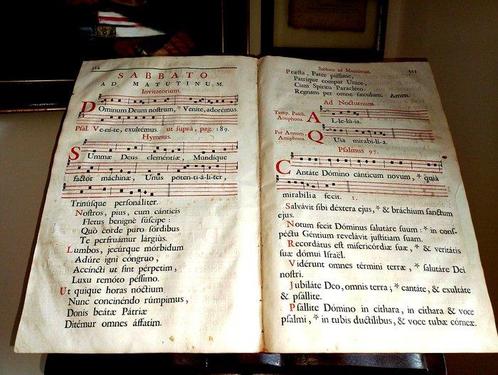 SABBATO
AD MATUTINUM.
Invitatorium.
Dominum Deum nostrum, * Venite, adoremus.
Psal. Venite, exultemus. ut suprà, pag. 189.
Hymnus.
Summæ Deus clementiæ, Mundique
factor máchinæ, Unus poten-ti-á-li-ter,
Trinúsque personáliter.
Nostros, pius, cum cánticis
Fletus benígne súscipe:
Quò corde puro sórdibus
Te perfruámur lárgiùs.
Lumbos, jecúrque mórbidum
Adúre igni cóngruo,
Accíncti ut sint pérpetim,
Luxu remóto péssimo.
Ut quique horas nóctium
Nunc concinéndo rúmpimus,
Donis beátæ Pátriæ
Ditémur omnes áffatim.
Sabbato ad Matutinum.
Præsta, Pater piíssime,
Patríque compar Unice,
Cum Spíritu Paráclito,
Regnans per omne sǽculum. Amen.
Ad Nocturnum
Temp. Pasch. Antiphona.
Al-le-lú-ia.
Per Annum Antiphona.
Quia mirabí-li-a.
Psalmus 97.
Cantáte Dómino cánticum novum, * quià
mirabília fecit.
Salvávit sibi déxtera ejus, * & bráchium sanctum
ejus.
Notum fecit Dóminus salutáre suum: * in conspéctu Géntium revelávit justítiam suam.
Recordátus est misericórdiæ suæ, * & veritátis
suæ dómui Israël.
Vidérunt omnes términi terræ, * salutáre Dei
nostri.
Jubiláte Deo, omnis terra; * cantáte, & exultáte
& psállite.
Psállite Dómino in cíthara, in cíthara & voce
psalmi, * in tubis ductílibus, & voce tubæ córneæ.